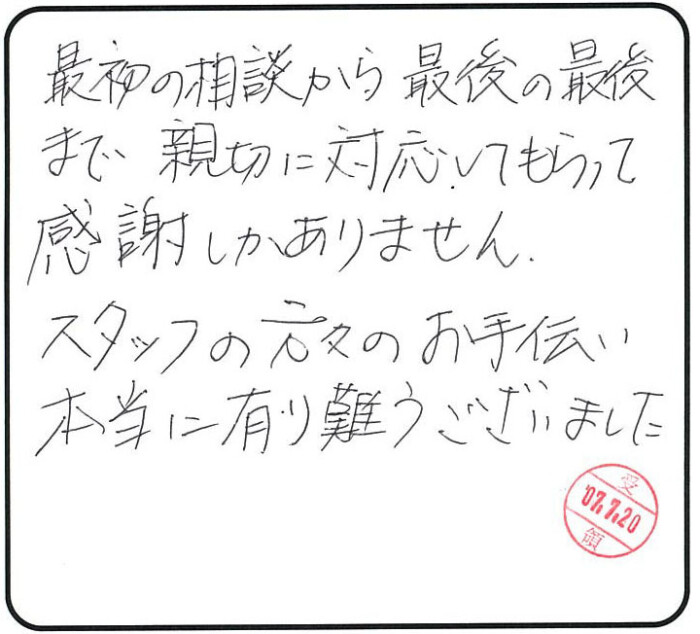 最初の相談から最後の最後
まで親切に対応してもらって
感謝しかありません.
スタッフの方々のお手伝い
本当に有り難うございました
受
'07.7.20
領